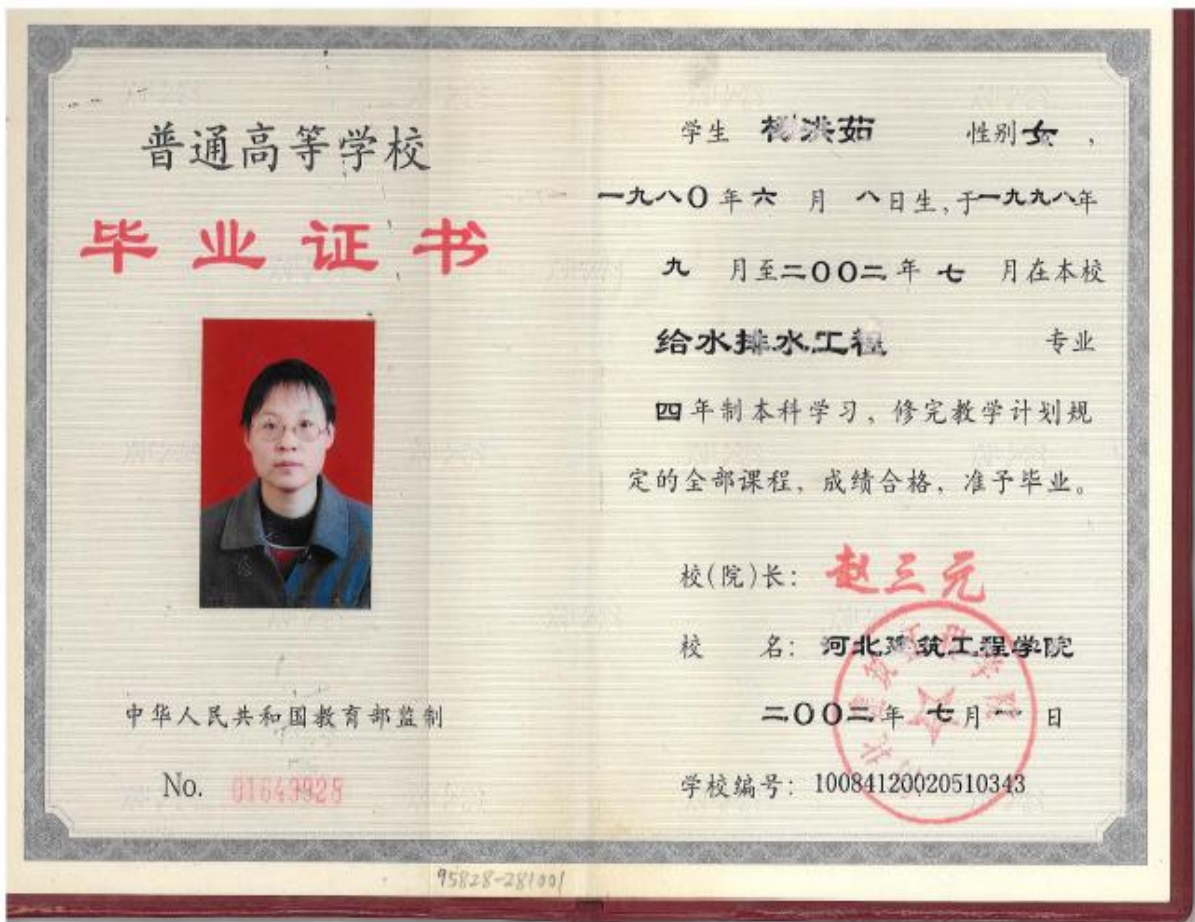 普通高等学校
毕业证书
中华人民共和国教育部监制
No. 01643928
学生 杨洪茹 性别 女 ，
一九八〇年六 月 八日生，于一九九八年
九 月至二〇〇二年 七 月在本校
给水排水工程 专业
四年制本科学习，修完教学计划规
定的全部课程，成绩合格，准予毕业。
校(院)长： 赵三元
校 名：河北建筑工程学院
二〇〇二年 七月 一 日
学校编号：10084120020510343
95828-281001